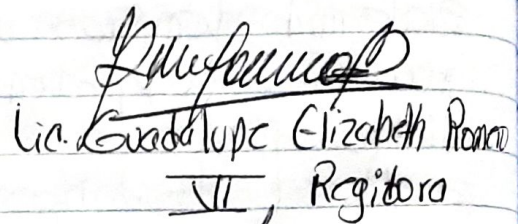 Lic. Guadalupe Elizabeth Romero
VI, Regidora